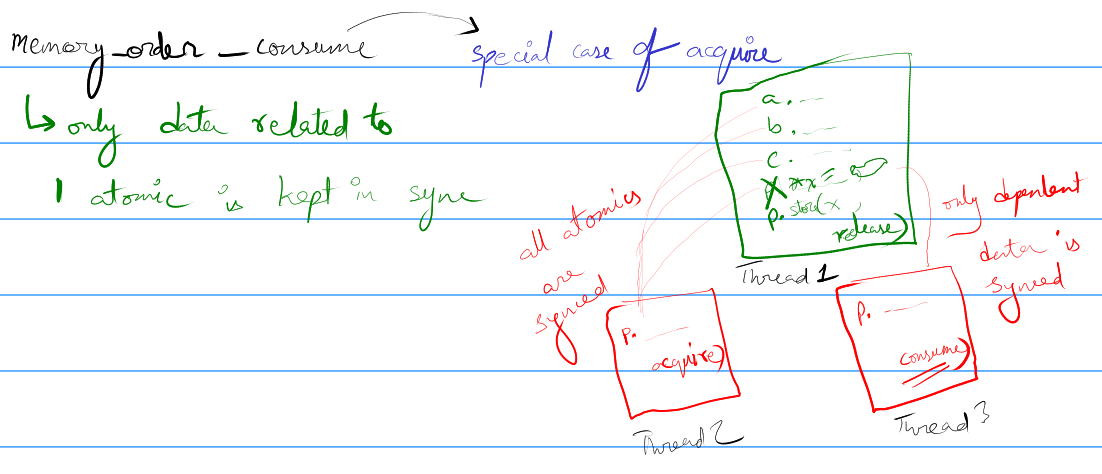 memory_order_consume
special case of acquire
↳ only data related to
1 atomic is kept in sync
a. —
b. —
c. —
*x =
p. store(x,
release)
Thread 1
all atomics
are
synced
only dependent
data is
synced
p. —
acquire)
Thread 2
p. —
consume)
Thread 3